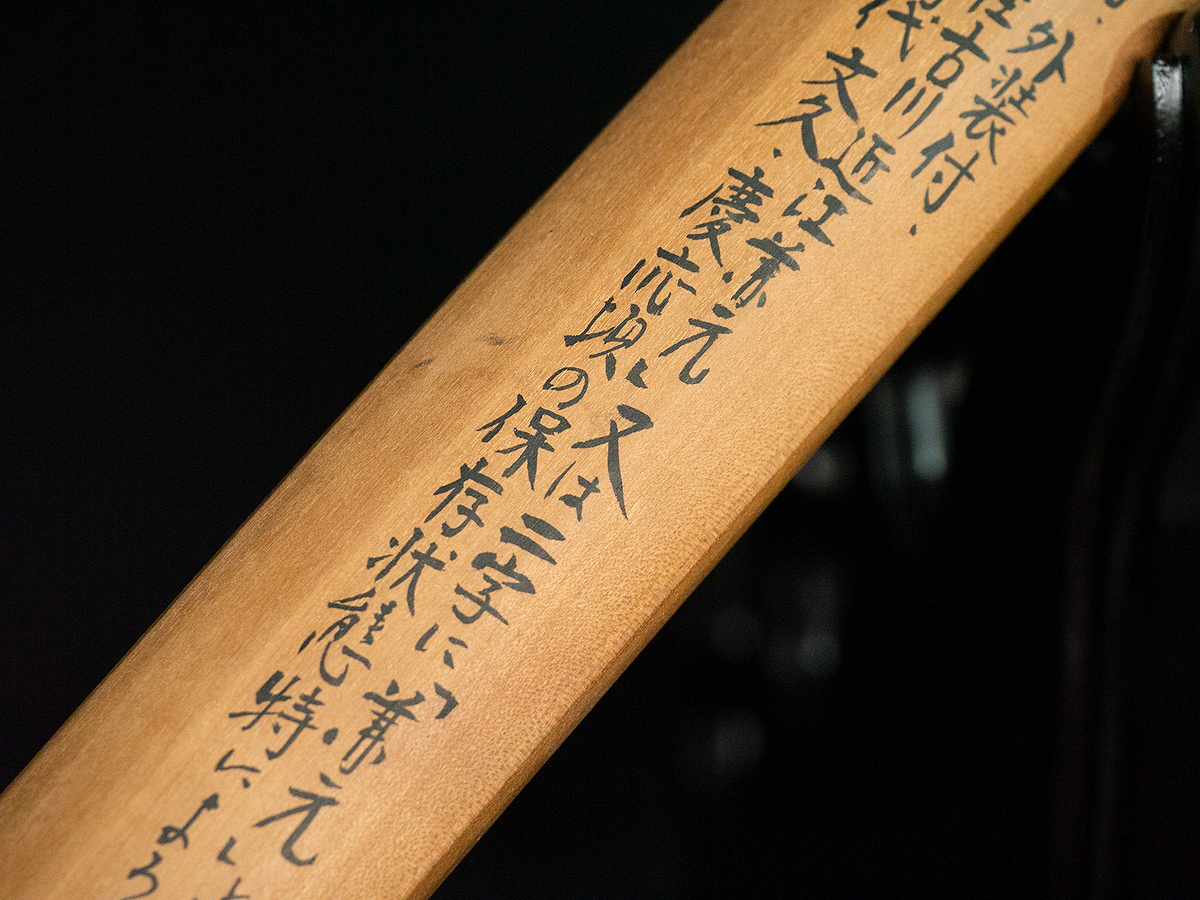 外装付・
住古川近江兼元」又は二字に「兼元」
代文久・慶応頃の保存状態特によろ